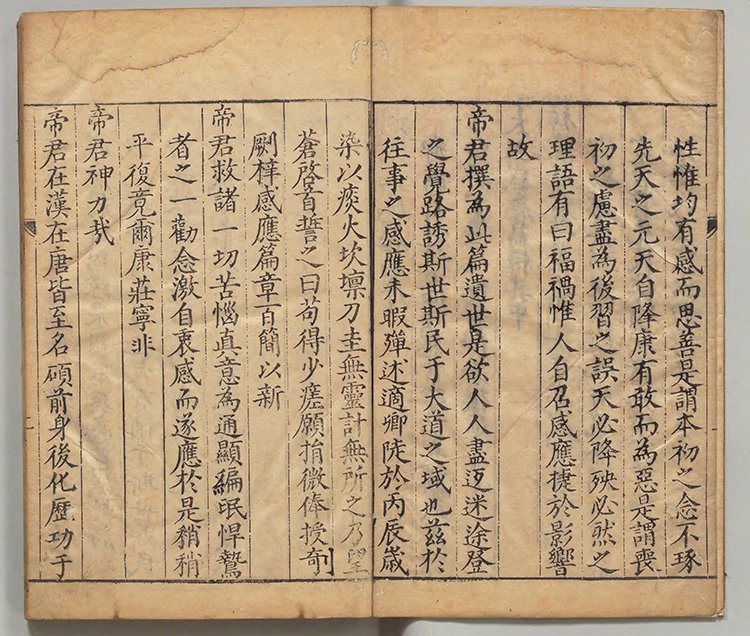 性惟均有感而思善是謂本初之念不琢
先天之元天自降康有敢而為惡是謂喪
初之慮盡為後習之誤天必降殃必然之
理語有曰福禍惟人自召感應捷於影響
故
帝君撰為此篇遺世是欲人人盡迓迷途登
之覺路誘斯世斯民于大道之域也兹於
往事之感應未暇殫述適卿陡於丙辰歲
染以痰火坎壈刀圭無靈計無所之乃望
蒼啓首誓之曰苟得少瘥願捐微俸授奇
劂梓感應篇章百簡以新
帝君救諸一切苦惱真意為通顯編氓悍鷙
者之一勸念激自衷感而遂應於是稍稍
平復竟爾康莊寧非
帝君神力哉
帝君在漢在唐皆至名碩前身後化歷功于